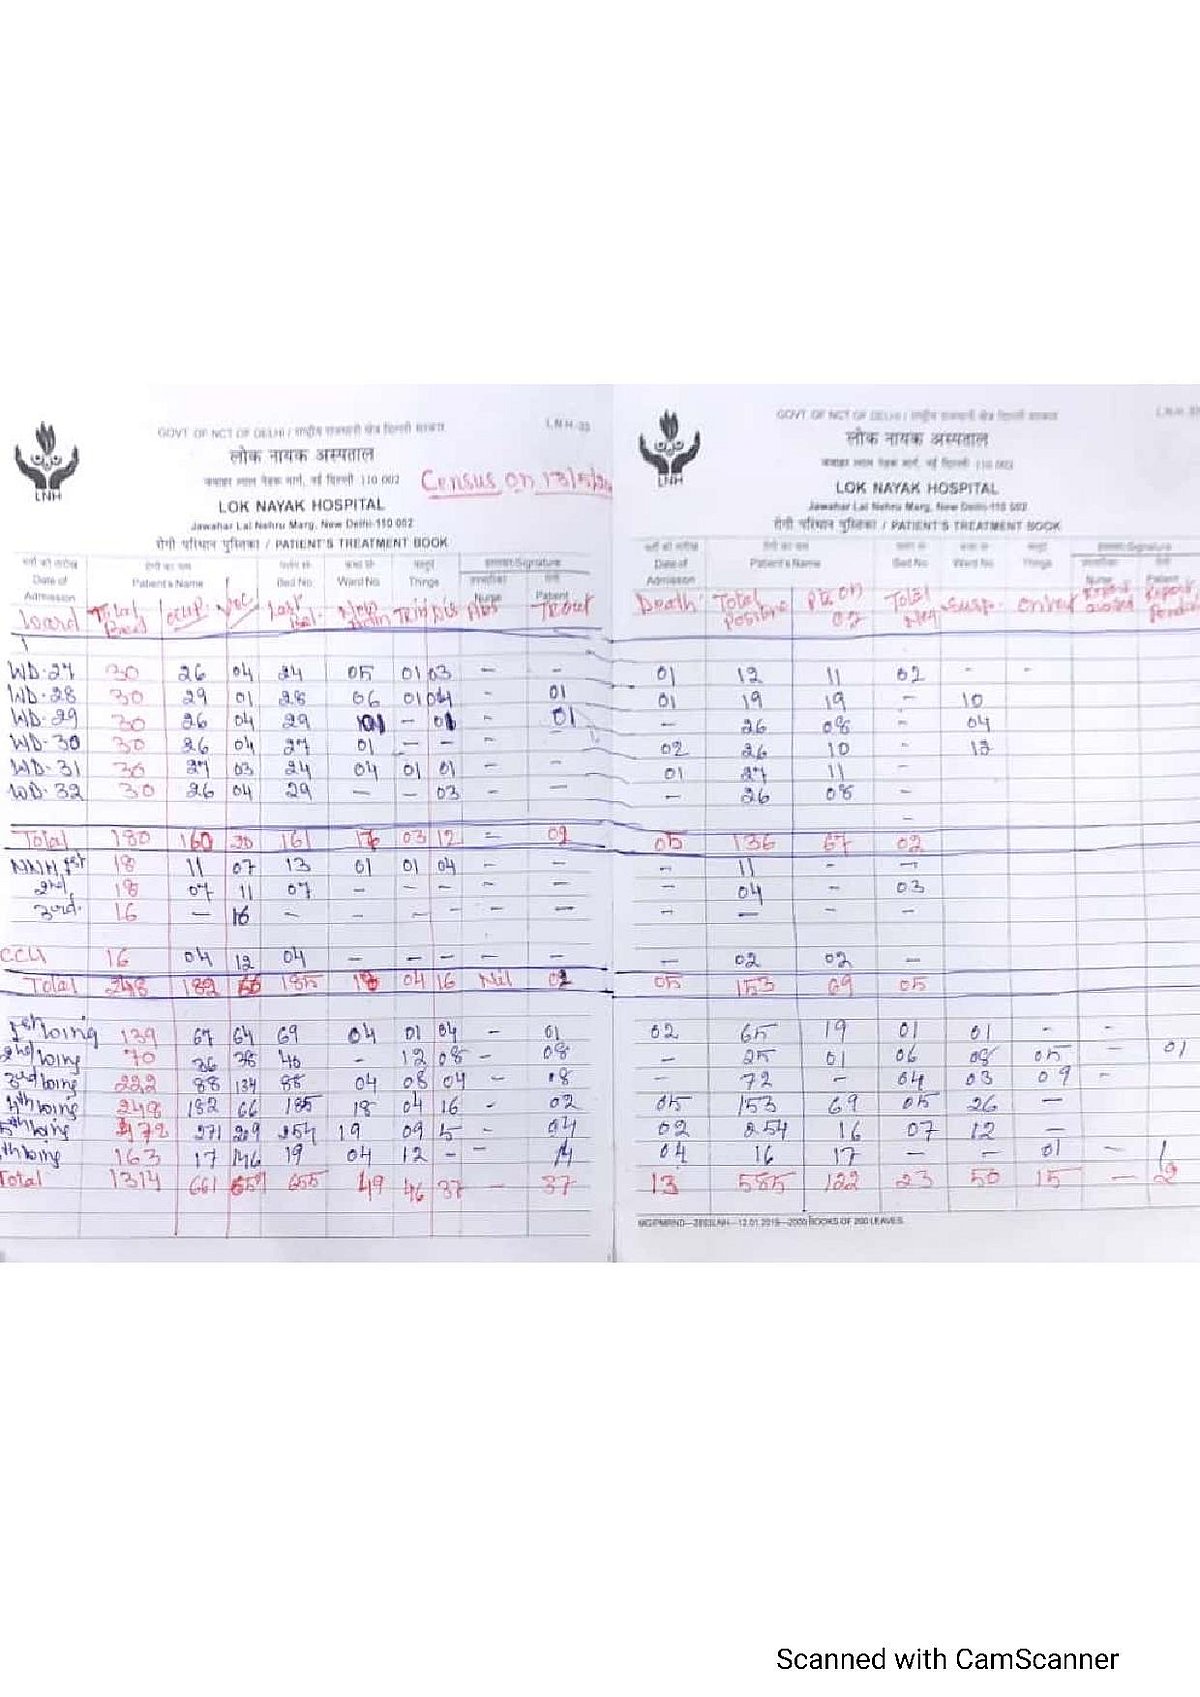 GOVT OF NCT OF DELHI / राष्ट्रीय राजधानी क्षेत्र दिल्ली सरकार
LNH-33
लोक नायक अस्पताल
जवाहर लाल नेहरू मार्ग, नई दिल्ली 110 002
Census on
LNH
LOK NAYAK HOSPITAL
Jawahar Lal Nehru Marg, New Delhi-110 002
रोगी परिचर्या पुस्तिका / PATIENT'S TREATMENT BOOK
Date of Admission Patient's Name Bed No. Ward No. Things Signature Nurse Patient
Ward Total Bed occup. Vac. Last Bal. New Adm TR in Dis Abs TR out
WD-27 30 26 04 24 05 01 03 - -
WD-28 30 29 01 28 06 01 04 - 01
WD-29 30 26 04 29 01 - 01 - 01
WD-30 30 26 04 27 01 - - - -
WD-31 30 27 03 24 04 01 01 - -
WD-32 30 26 04 29 - - 03 - -
Total 180 160 20 161 03 12 - 02
1st 18 11 07 13 01 01 04 - -
2nd 18 07 11 07 - - - - -
3rd. 16 - 16 - - - - - -
16 04 12 04 - - - - -
Total 248 182 66 185 18 04 16 Nil 02
1st wing 139 67 64 69 04 01 04 - 01
2nd wing 70 36 38 40 - 12 08 - 08
3rd wing 222 88 134 88 04 08 04 - 08
4th wing 248 182 66 185 18 04 16 - 02
5th wing 472 271 209 254 19 09 5 - 04
th wing 163 17 146 19 04 12 - - 14
Total 1314 661 655 49 46 37 - 37
GOVT OF NCT OF DELHI / राष्ट्रीय राजधानी क्षेत्र दिल्ली सरकार
LNH-33
लोक नायक अस्पताल
जवाहर लाल नेहरू मार्ग, नई दिल्ली 110 002
LNH
LOK NAYAK HOSPITAL
Jawahar Lal Nehru Marg, New Delhi-110 002
रोगी परिचर्या पुस्तिका / PATIENT'S TREATMENT BOOK
Date of Admission Patient's Name Bed No. Ward No. Things Signature Nurse Patient
Death Total Positive Pts on O2 Total Neg Susp. Report Report Pending
01 12 11 02 - -
01 19 19 - 10
- 26 08 - 04
02 26 10 - 12
01 27 11 -
- 26 08 -
-
05 136 67 02
- 11 - -
- 04 - 03
- - - -
- 02 02 -
05 153 69 05
02 65 19 01 01 - -
- 25 01 06 08 05 - 01
- 72 - 04 03 09 -
05 153 69 05 26 -
02 254 16 07 12 -
04 16 17 - - 01 - 1
13 585 122 23 50 15 - 2
12.01.2019—2000 BOOKS OF 200 LEAVES
Scanned with CamScanner